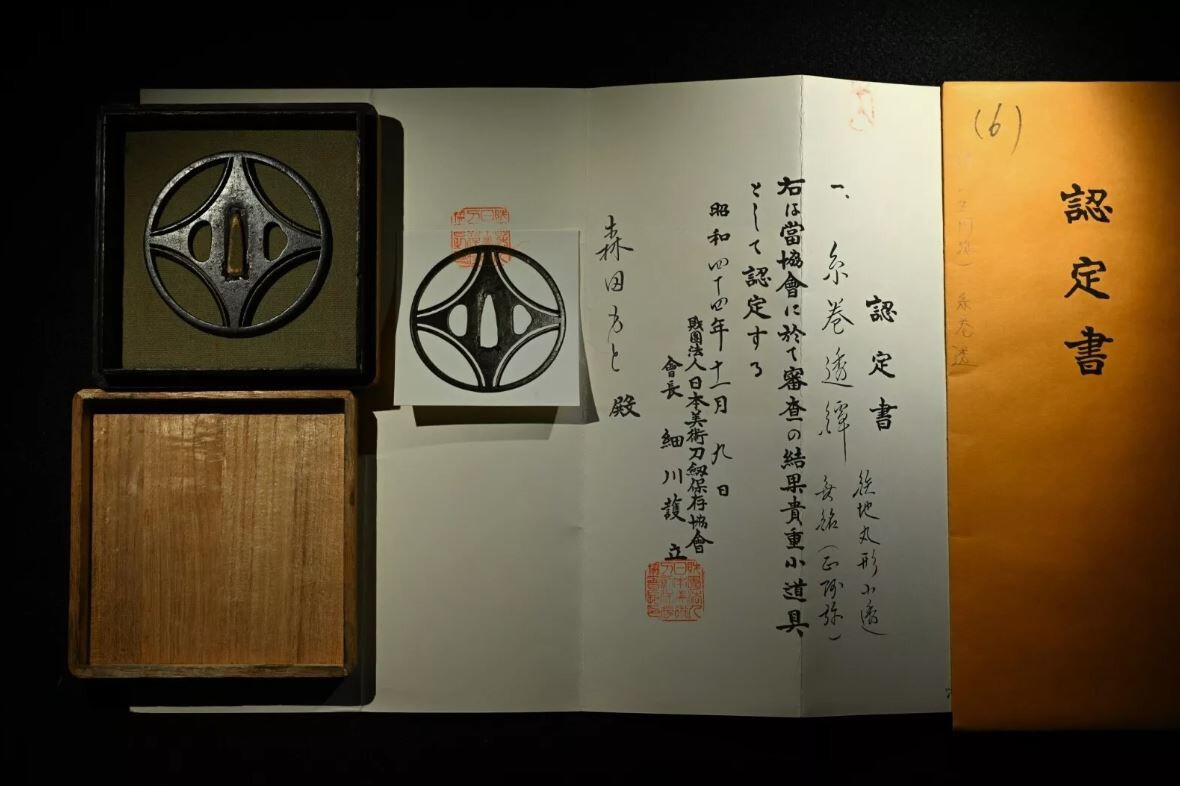 (6)
認定書
認定書
鉄地丸形小透
一、糸巻透鐔 無銘(正阿弥)
右は當協會に於て審査の結果貴重小道具
として認定する
昭和四十四年十一月九日
財團法人日本美術刀劔保存協會
會長 細川護立
森田 殿